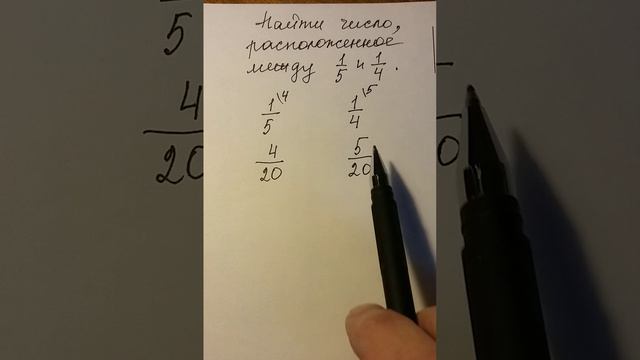 Найти число,
расположенное
между 1/5 и 1/4.
1/5 \4 1/4 \5
4/20 5/20